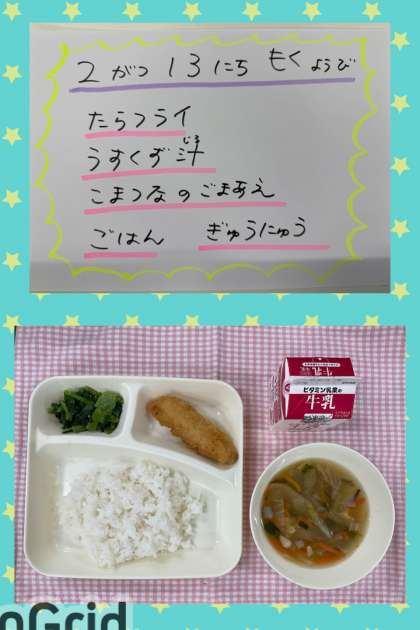 2がつ13にち もくようび
たらフライ
うすくず汁
じる
こまつなのごまあえ
ごはん ぎゅうにゅう
牛乳
ビタミン乳業の
牛乳
Grid